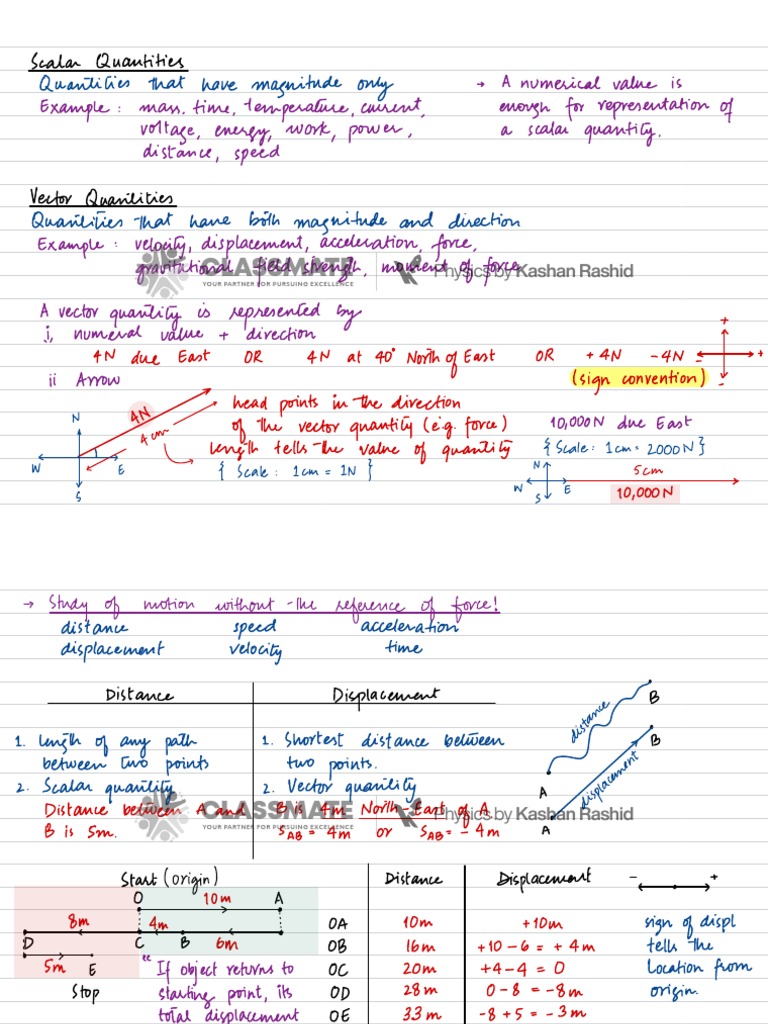 Scalar Quantities
Quantities that have magnitude only
Example : mass, time, temperature, current,
voltage, energy, work, power,
distance, speed
→ A numerical value is
enough for representation of
a scalar quantity.
Vector Quantities
Quantities that have both magnitude and direction
Example : velocity, displacement, acceleration, force,
gravitational field strength, moment of force
CLASSMATE
YOUR PARTNER FOR PURSUING EXCELLENCE
Physics by Kashan Rashid
A vector quantity is represented by
i, numeral value + direction
4N due East OR 4N at 40° North of East OR + 4N - 4N
+
- +
-
ii Arrow
(sign convention)
N
W E
S
4N
4 cm
head points in the direction
of the vector quantity (e.g. force)
length tells the value of quantity
{ Scale : 1cm = 1N }
10,000N due East
{ Scale : 1cm = 2000N }
N
W E
S
5cm
10,000N
→ Study of motion without the reference of force!
distance speed acceleration
displacement velocity time
Distance Displacement
1. length of any path
between two points
2. Scalar quantity
Distance between A and
B is 5m.
1. Shortest distance between
two points.
2. Vector quantity
B is 4m North-East of A
SAB = 4m or SAB = - 4m
distance
A B
displacement
A B
CLASSMATE
YOUR PARTNER FOR PURSUING EXCELLENCE
Physics by Kashan Rashid
Start (origin) Distance Displacement - +
O 10m A
8m 4m
D C B 6m
5m E
Stop
"If object returns to
starting point, its
total displacement
OA 10m +10m
OB 16m +10 - 6 = + 4m
OC 20m +4 - 4 = 0
OD 28m 0 - 8 = -8m
OE 33m -8 + 5 = - 3m
sign of displ
tells the
location from
origin.